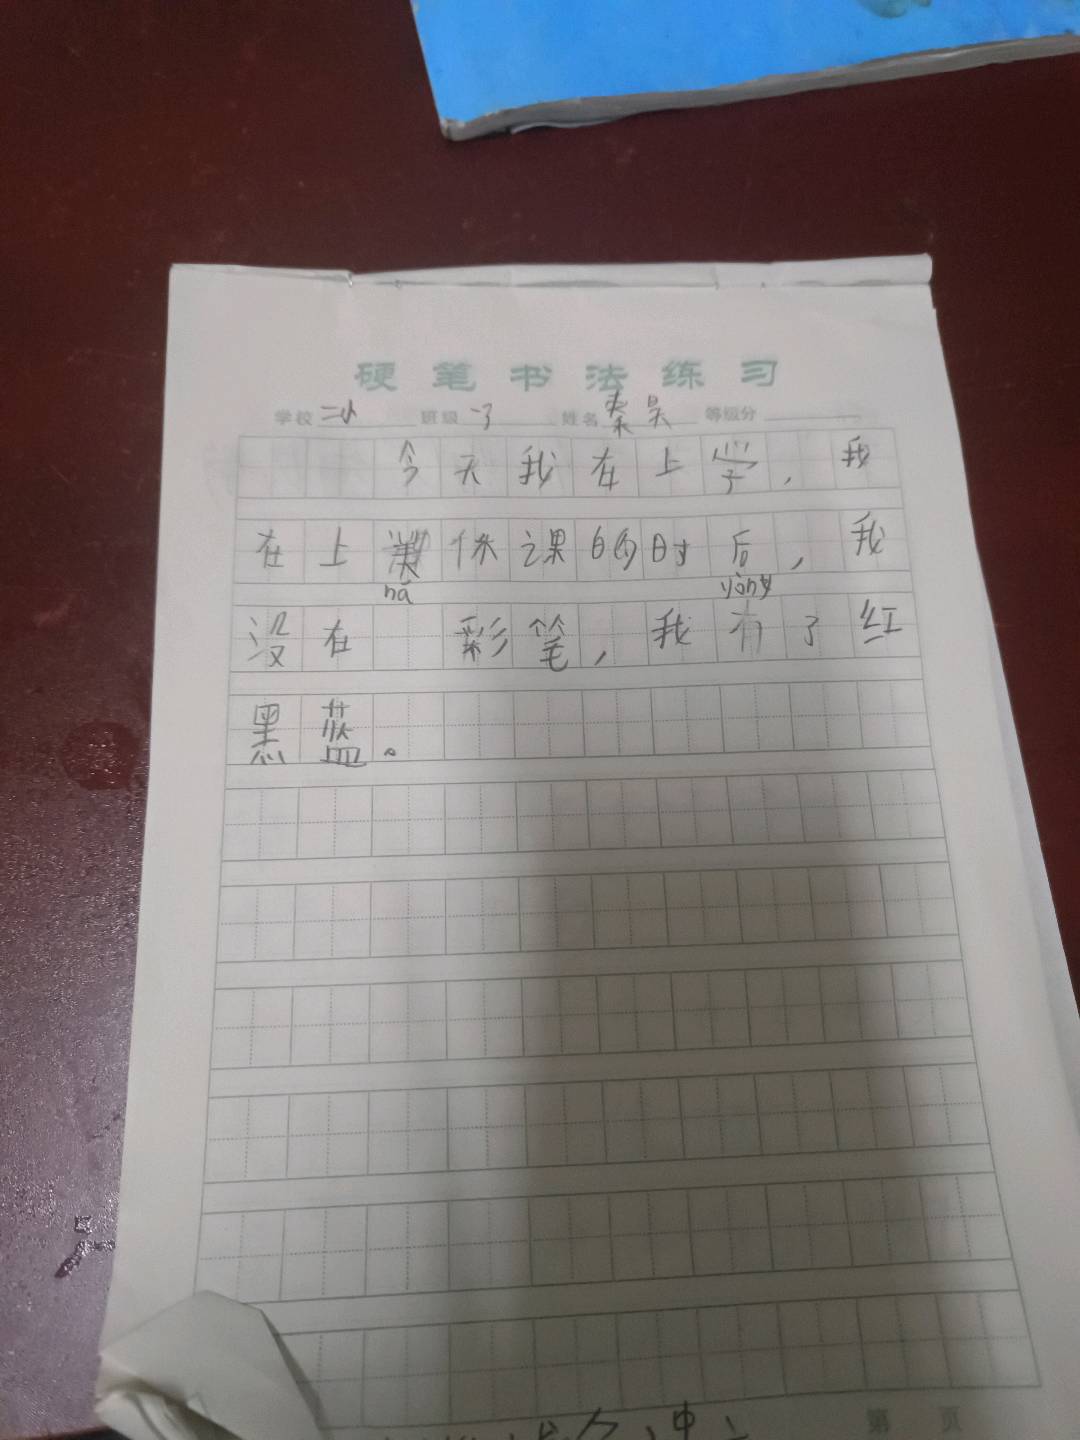 硬笔书法练习
学校 二小 班级 一3 姓名 秦昊 等级分
今天我在上学，我
在上美体课的时后，我
nā yòng
没在 彩笔，我 了红
黑蓝。
第 页